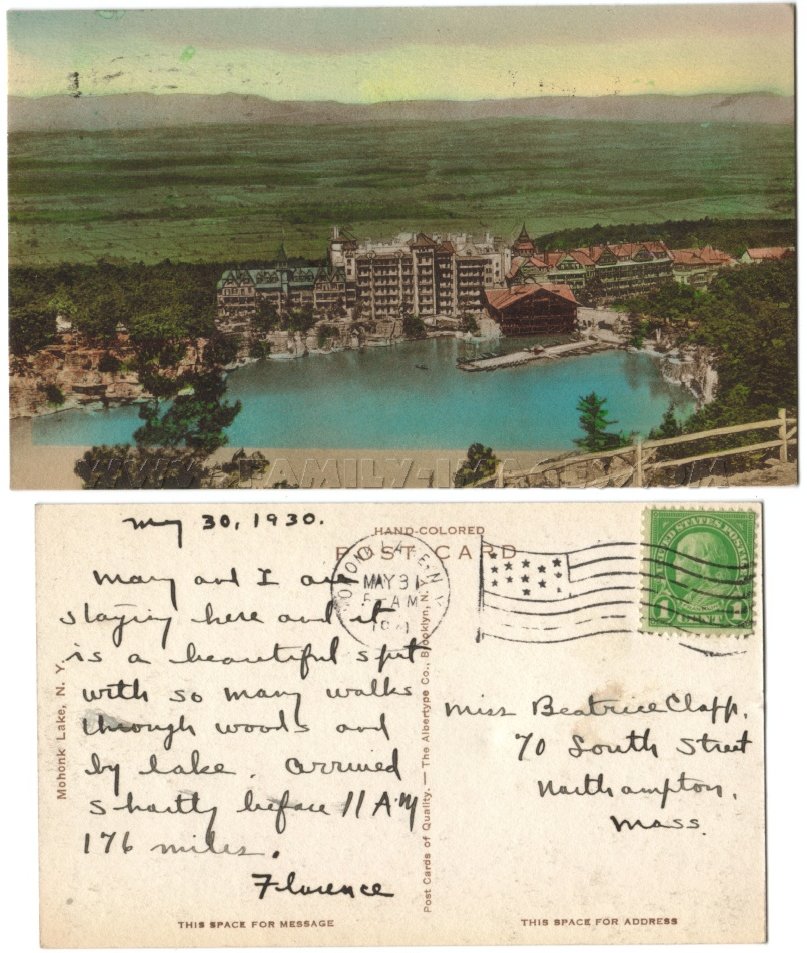 WWW.FAMILY-IMAGES.COM
May 30, 1930.
HAND-COLORED
POST CARD
MOHONK LAKE, N.Y.
MAY 31
AM
UNITED STATES POSTAGE
FRANKLIN
1 CENT 1
Mary and I are
staying here and it
is a beautiful spot
with so many walks
through woods and
by lake. Arrived
shortly before 11 A.M
176 miles.
Florence
Mohonk Lake, N. Y.
Post Cards of Quality. — The Albertype Co., Brooklyn, N.Y.
Miss Beatrice Clapp.
70 South Street
Northampton,
Mass.
THIS SPACE FOR MESSAGE
THIS SPACE FOR ADDRESS